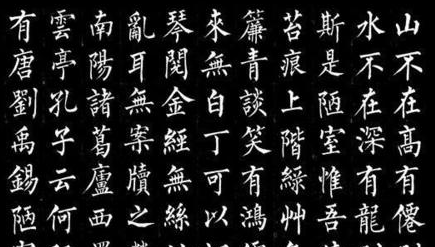 山不在高有僊
水不在深有龍
斯是陋室惟吾
苔痕上階綠艸
簾青談笑有鴻
來無白丁可以
琴閱金經無絲
亂耳無案牘之
南陽諸葛廬西
雲亭孔子云何
有唐劉禹錫陋